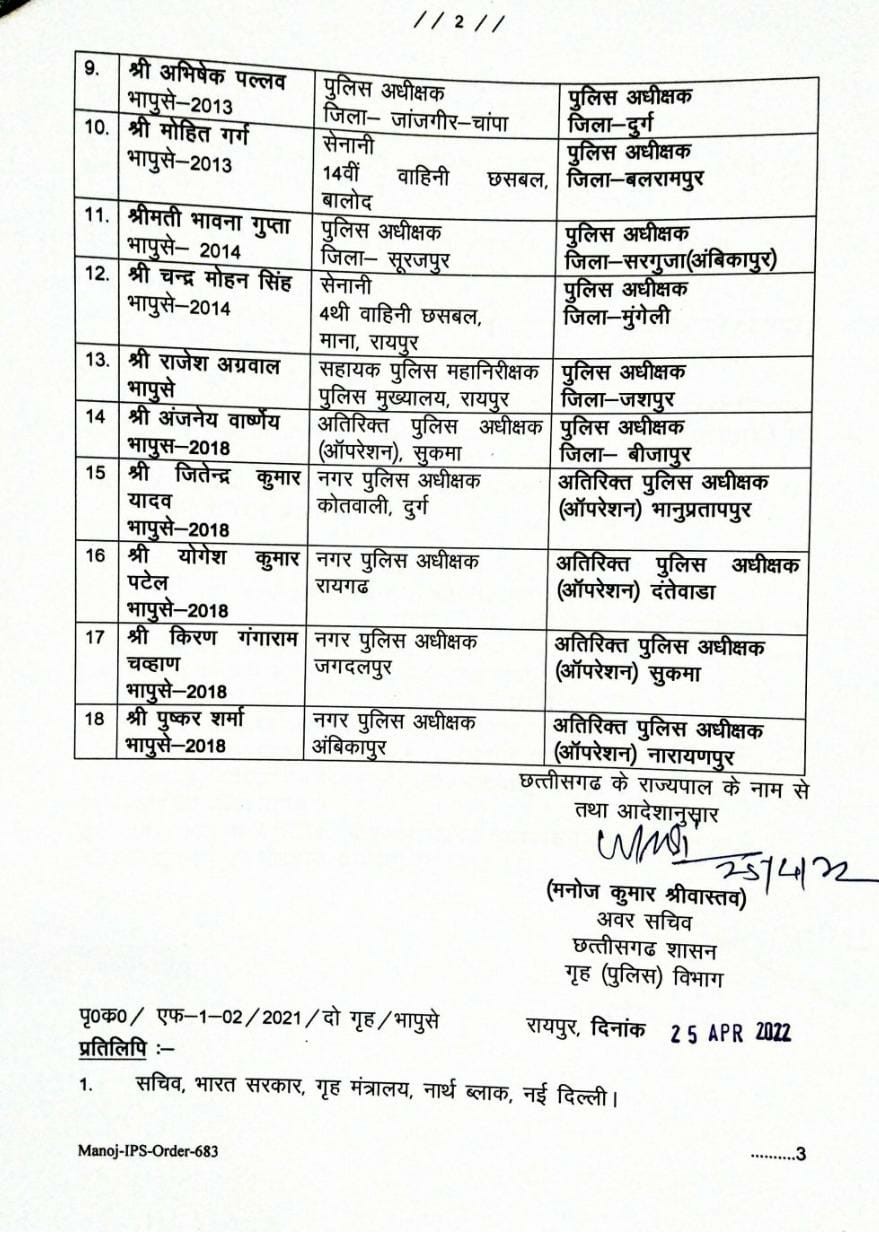 // 2 //
9. श्री अभिषेक पल्लव
भापुसे–2013
पुलिस अधीक्षक
जिला– जांजगीर–चांपा
पुलिस अधीक्षक
जिला–दुर्ग
10. श्री मोहित गर्ग
भापुसे–2013
सेनानी
14वीं वाहिनी छसबल,
बालोद
पुलिस अधीक्षक
जिला–बलरामपुर
11. श्रीमती भावना गुप्ता
भापुसे– 2014
पुलिस अधीक्षक
जिला– सूरजपुर
पुलिस अधीक्षक
जिला–सरगुजा(अंबिकापुर)
12. श्री चन्द्र मोहन सिंह
भापुसे–2014
सेनानी
4थी वाहिनी छसबल,
माना, रायपुर
पुलिस अधीक्षक
जिला–मुंगेली
13. श्री राजेश अग्रवाल
भापुसे
सहायक पुलिस महानिरीक्षक
पुलिस मुख्यालय, रायपुर
पुलिस अधीक्षक
जिला–जशपुर
14 श्री अंजनेय वार्ष्णेय
भापुस–2018
अतिरिक्त पुलिस अधीक्षक
(ऑपरेशन), सुकमा
पुलिस अधीक्षक
जिला– बीजापुर
15 श्री जितेन्द्र कुमार
यादव
भापुसे–2018
नगर पुलिस अधीक्षक
कोतवाली, दुर्ग
अतिरिक्त पुलिस अधीक्षक
(ऑपरेशन) भानुप्रतापपुर
16 श्री योगेश कुमार
पटेल
भापुसे–2018
नगर पुलिस अधीक्षक
रायगढ
अतिरिक्त पुलिस अधीक्षक
(ऑपरेशन) दंतेवाडा
17 श्री किरण गंगाराम
चव्हाण
भापुसे–2018
नगर पुलिस अधीक्षक
जगदलपुर
अतिरिक्त पुलिस अधीक्षक
(ऑपरेशन) सुकमा
18 श्री पुष्कर शर्मा
भापुसे–2018
नगर पुलिस अधीक्षक
अंबिकापुर
अतिरिक्त पुलिस अधीक्षक
(ऑपरेशन) नारायणपुर
छत्तीसगढ के राज्यपाल के नाम से
तथा आदेशानुसार
25/4/22
(मनोज कुमार श्रीवास्तव)
अवर सचिव
छत्तीसगढ शासन
गृह (पुलिस) विभाग
पृ0क0/ एफ–1–02/2021/दो गृह/भापुसे
रायपुर, दिनांक 25 APR 2022
प्रतिलिपि :–
1. सचिव, भारत सरकार, गृह मंत्रालय, नार्थ ब्लाक, नई दिल्ली।
Manoj-IPS-Order-683
..........3